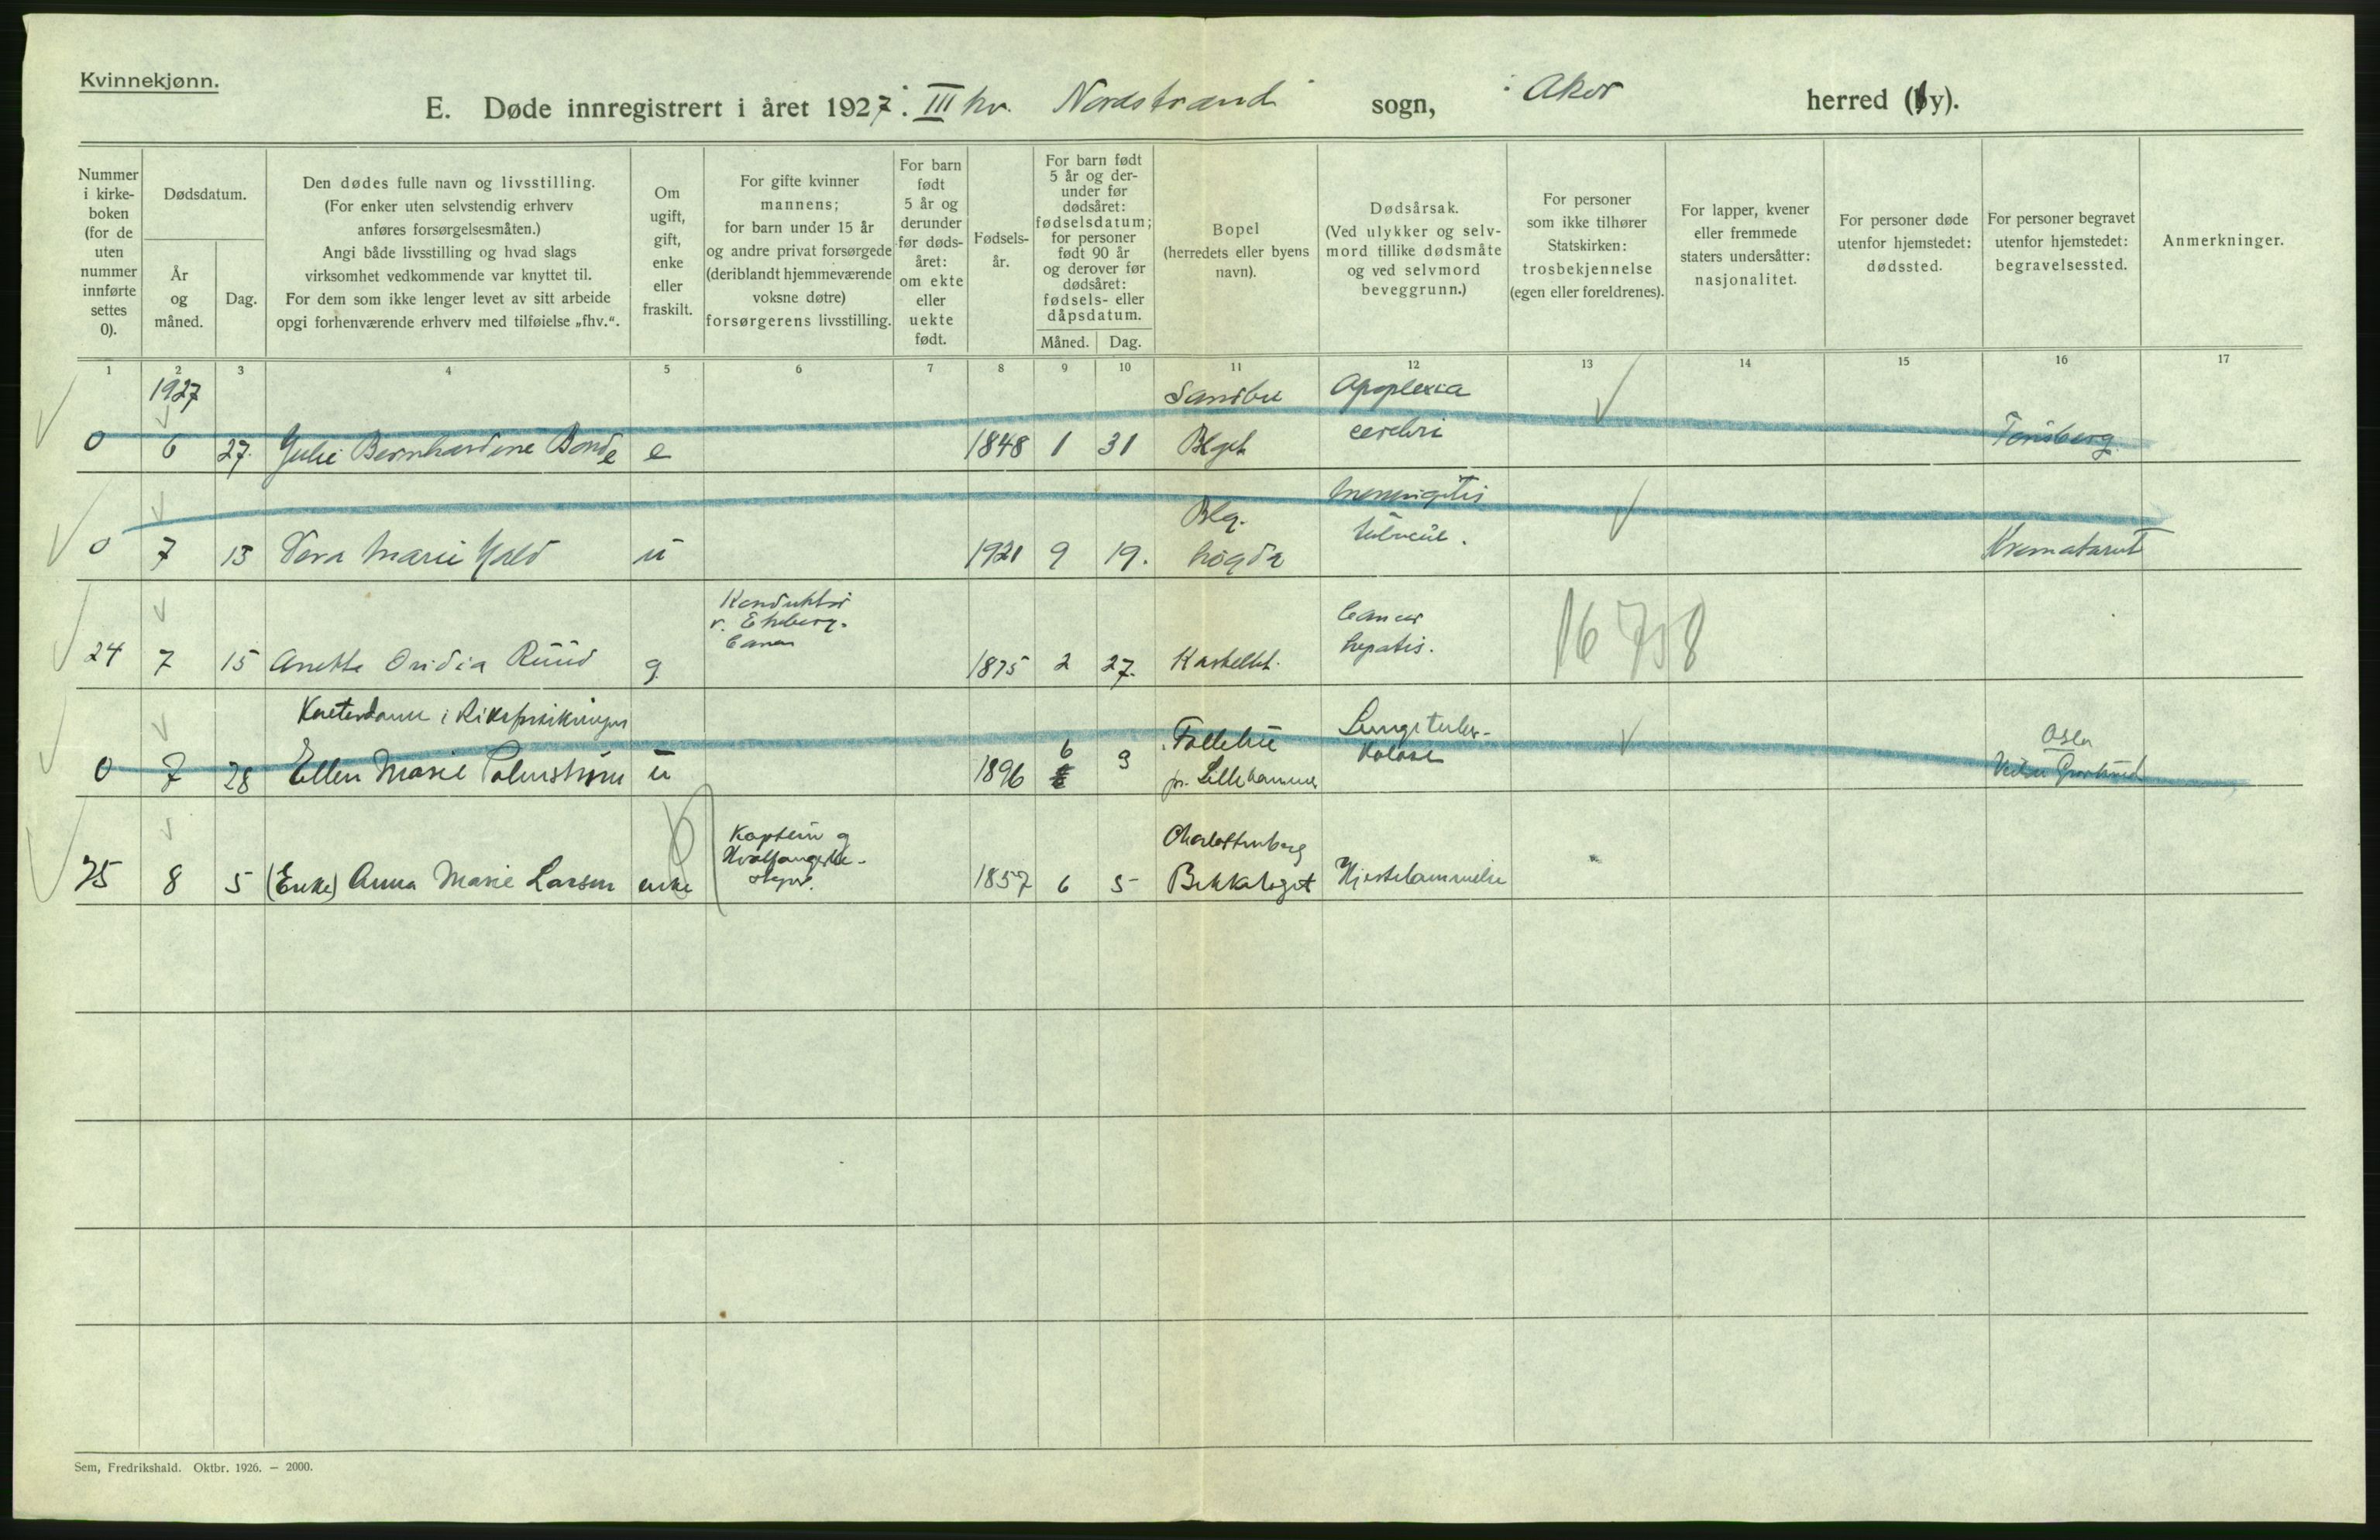 Kvinnekjønn.
E. Døde innregistrert i året 1927. III kv. Nordstrand sogn, i Aker herred (by).
Nummer i kirkeboken (for de uten nummer innførte settes 0).
Dødsdatum.
År og måned.
Dag.
Den dødes fulle navn og livsstilling.
(For enker uten selvstendig erhverv
anføres forsørgelsesmåten.)
Angi både livsstilling og hvad slags
virksomhet vedkommende var knyttet til.
For dem som ikke lenger levet av sitt arbeide
opgi forhenværende erhverv med tilføielse „fhv.“.
Om
ugift,
gift,
enke
eller
fraskilt.
For gifte kvinner
mannens;
for barn under 15 år
og andre privat forsørgede
(deriblandt hjemmeværende
voksne døtre)
forsørgerens livsstilling.
For barn
født
5 år og
derunder
før døds-
året:
om ekte
eller
uekte
født.
Fødsels-
år.
For barn født
5 år og der-
under før
dødsåret:
fødselsdatum;
for personer
født 90 år
og derover før
dødsåret:
fødsels- eller
dåpsdatum.
Måned.
Dag.
Bopel
(herredets eller byens
navn).
Dødsårsak.
(Ved ulykker og selv-
mord tillike dødsmåte
og ved selvmord
beveggrunn.)
For personer
som ikke tilhører
Statskirken:
trosbekjennelse
(egen eller foreldrenes).
For lapper, kvener
eller fremmede
staters undersåtter:
nasjonalitet.
For personer døde
utenfor hjemstedet:
dødssted.
For personer begravet
utenfor hjemstedet:
begravelsessted.
Anmerkninger.
1 2 3 4 5 6 7 8 9 10 11 12 13 14 15 16 17
1927 Sandbu Apoplexia
0 6 27. Julie Bernhardine Bonde e 1848 1 31 Blgel cerebri Tønsberg
Blq. Meningitis
0 7 13 Vera Marie u 1921 9 19. høgda tubercul.
Konduktør
v. Ekeberg-
banen Cancer
24 7 15 Anette Ovidia Ruud g. 1875 2 27. Kastellet. hepatis. 16 758
Kontordame i Riksforsikringen 6 Follebu Lungetuber- Oslo
0 7 28 Ellen Marie Palmstrøm u 1896 9 pr. Lillehammer kolose
Kaptein og
Hvalfangstbe-
styrer. Charlottenberg
25 8 5 (Enke) Anna Marie Larsen enke 1857 6 5 Bekkelaget Hjertelammelse
Sem, Fredrikshald. Oktbr. 1926. — 2000.